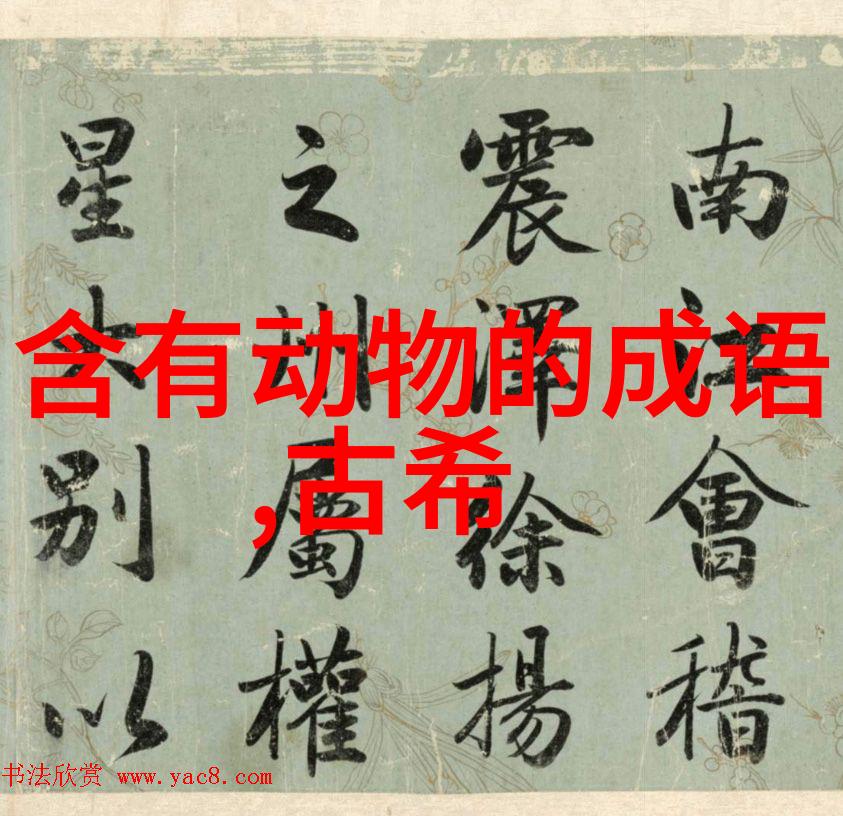 南江會稽
震澤徐揚
之州屬權
星大別以
含有动物的成语
,古希
书法欣赏 www.yac8.com